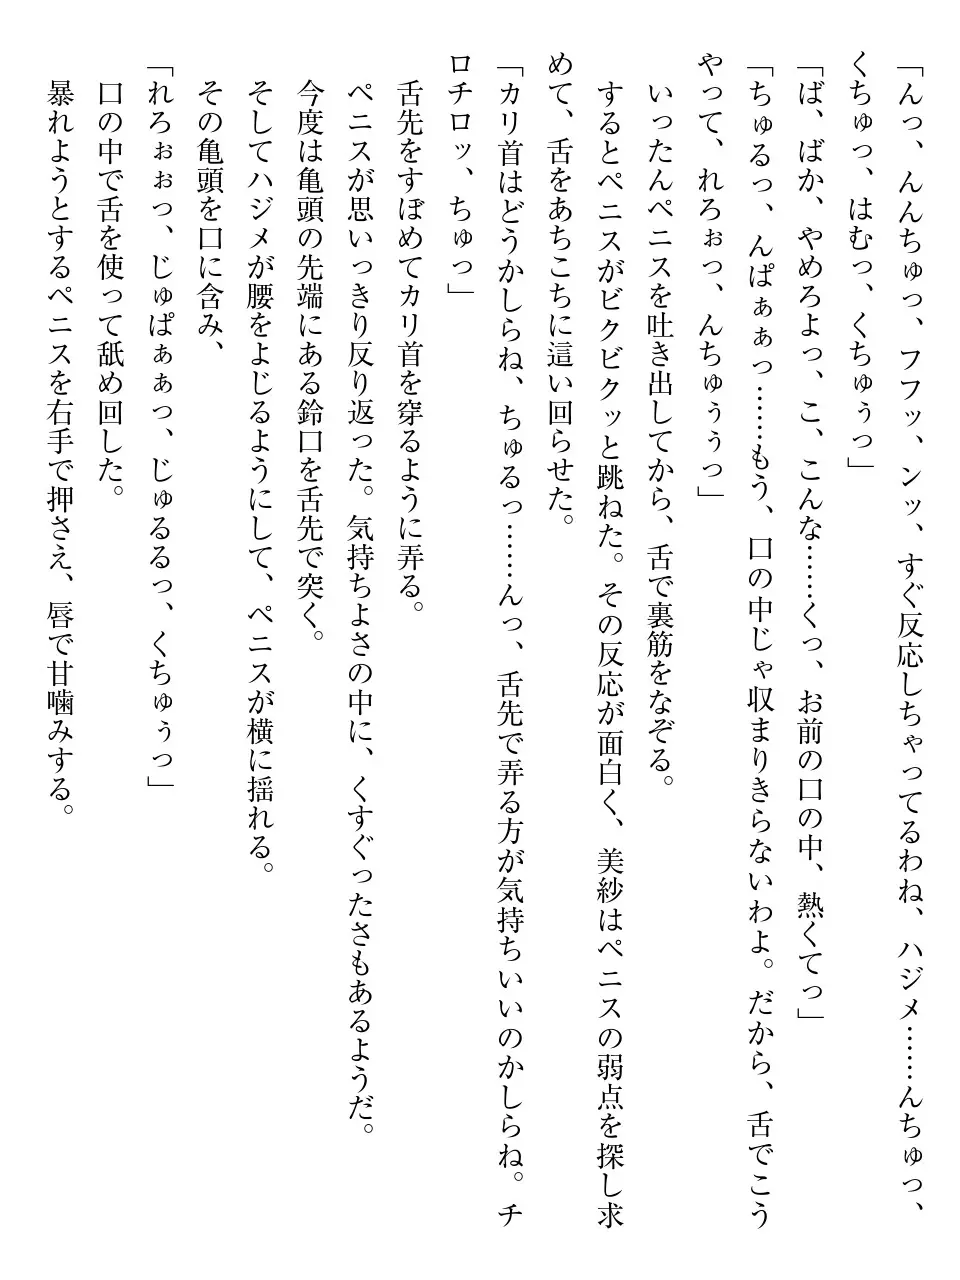 「んっ、んんちゅっ、フフッ、ンッ、すぐ反応しちゃってるわね、ハジメ……んちゅっ、
くちゅっ、はむっ、くちゅぅっ」
「ば、ばか、やめろよっ、こ、こんな……くっ、お前の口の中、熱くてっ」
「ちゅるっ、んぱぁぁっ……もう、口の中じゃ収まりきらないわよ。だから、舌でこう
やって、れろぉっ、んちゅぅぅっ」
いったんペニスを吐き出してから、舌で裏筋をなぞる。
するとペニスがビクビクッと跳ねた。その反応が面白く、美紗はペニスの弱点を探し求
めて、舌をあちこちに這い回らせた。
「カリ首はどうかしらね、ちゅるっ……んっ、舌先で弄る方が気持ちいいのかしらね。チ
ロチロッ、ちゅっ」
舌先をすぼめてカリ首を穿るように弄る。
ペニスが思いっきり反り返った。気持ちよさの中に、くすぐったさもあるようだ。
今度は亀頭の先端にある鈴口を舌先で突く。
そしてハジメが腰をよじるようにして、ペニスが横に揺れる。
その亀頭を口に含み、
「れろぉぉっ、じゅぱぁぁっ、じゅるるっ、くちゅぅっ」
口の中で舌を使って舐め回した。
暴れようとするペニスを右手で押さえ、唇で甘噛みする。